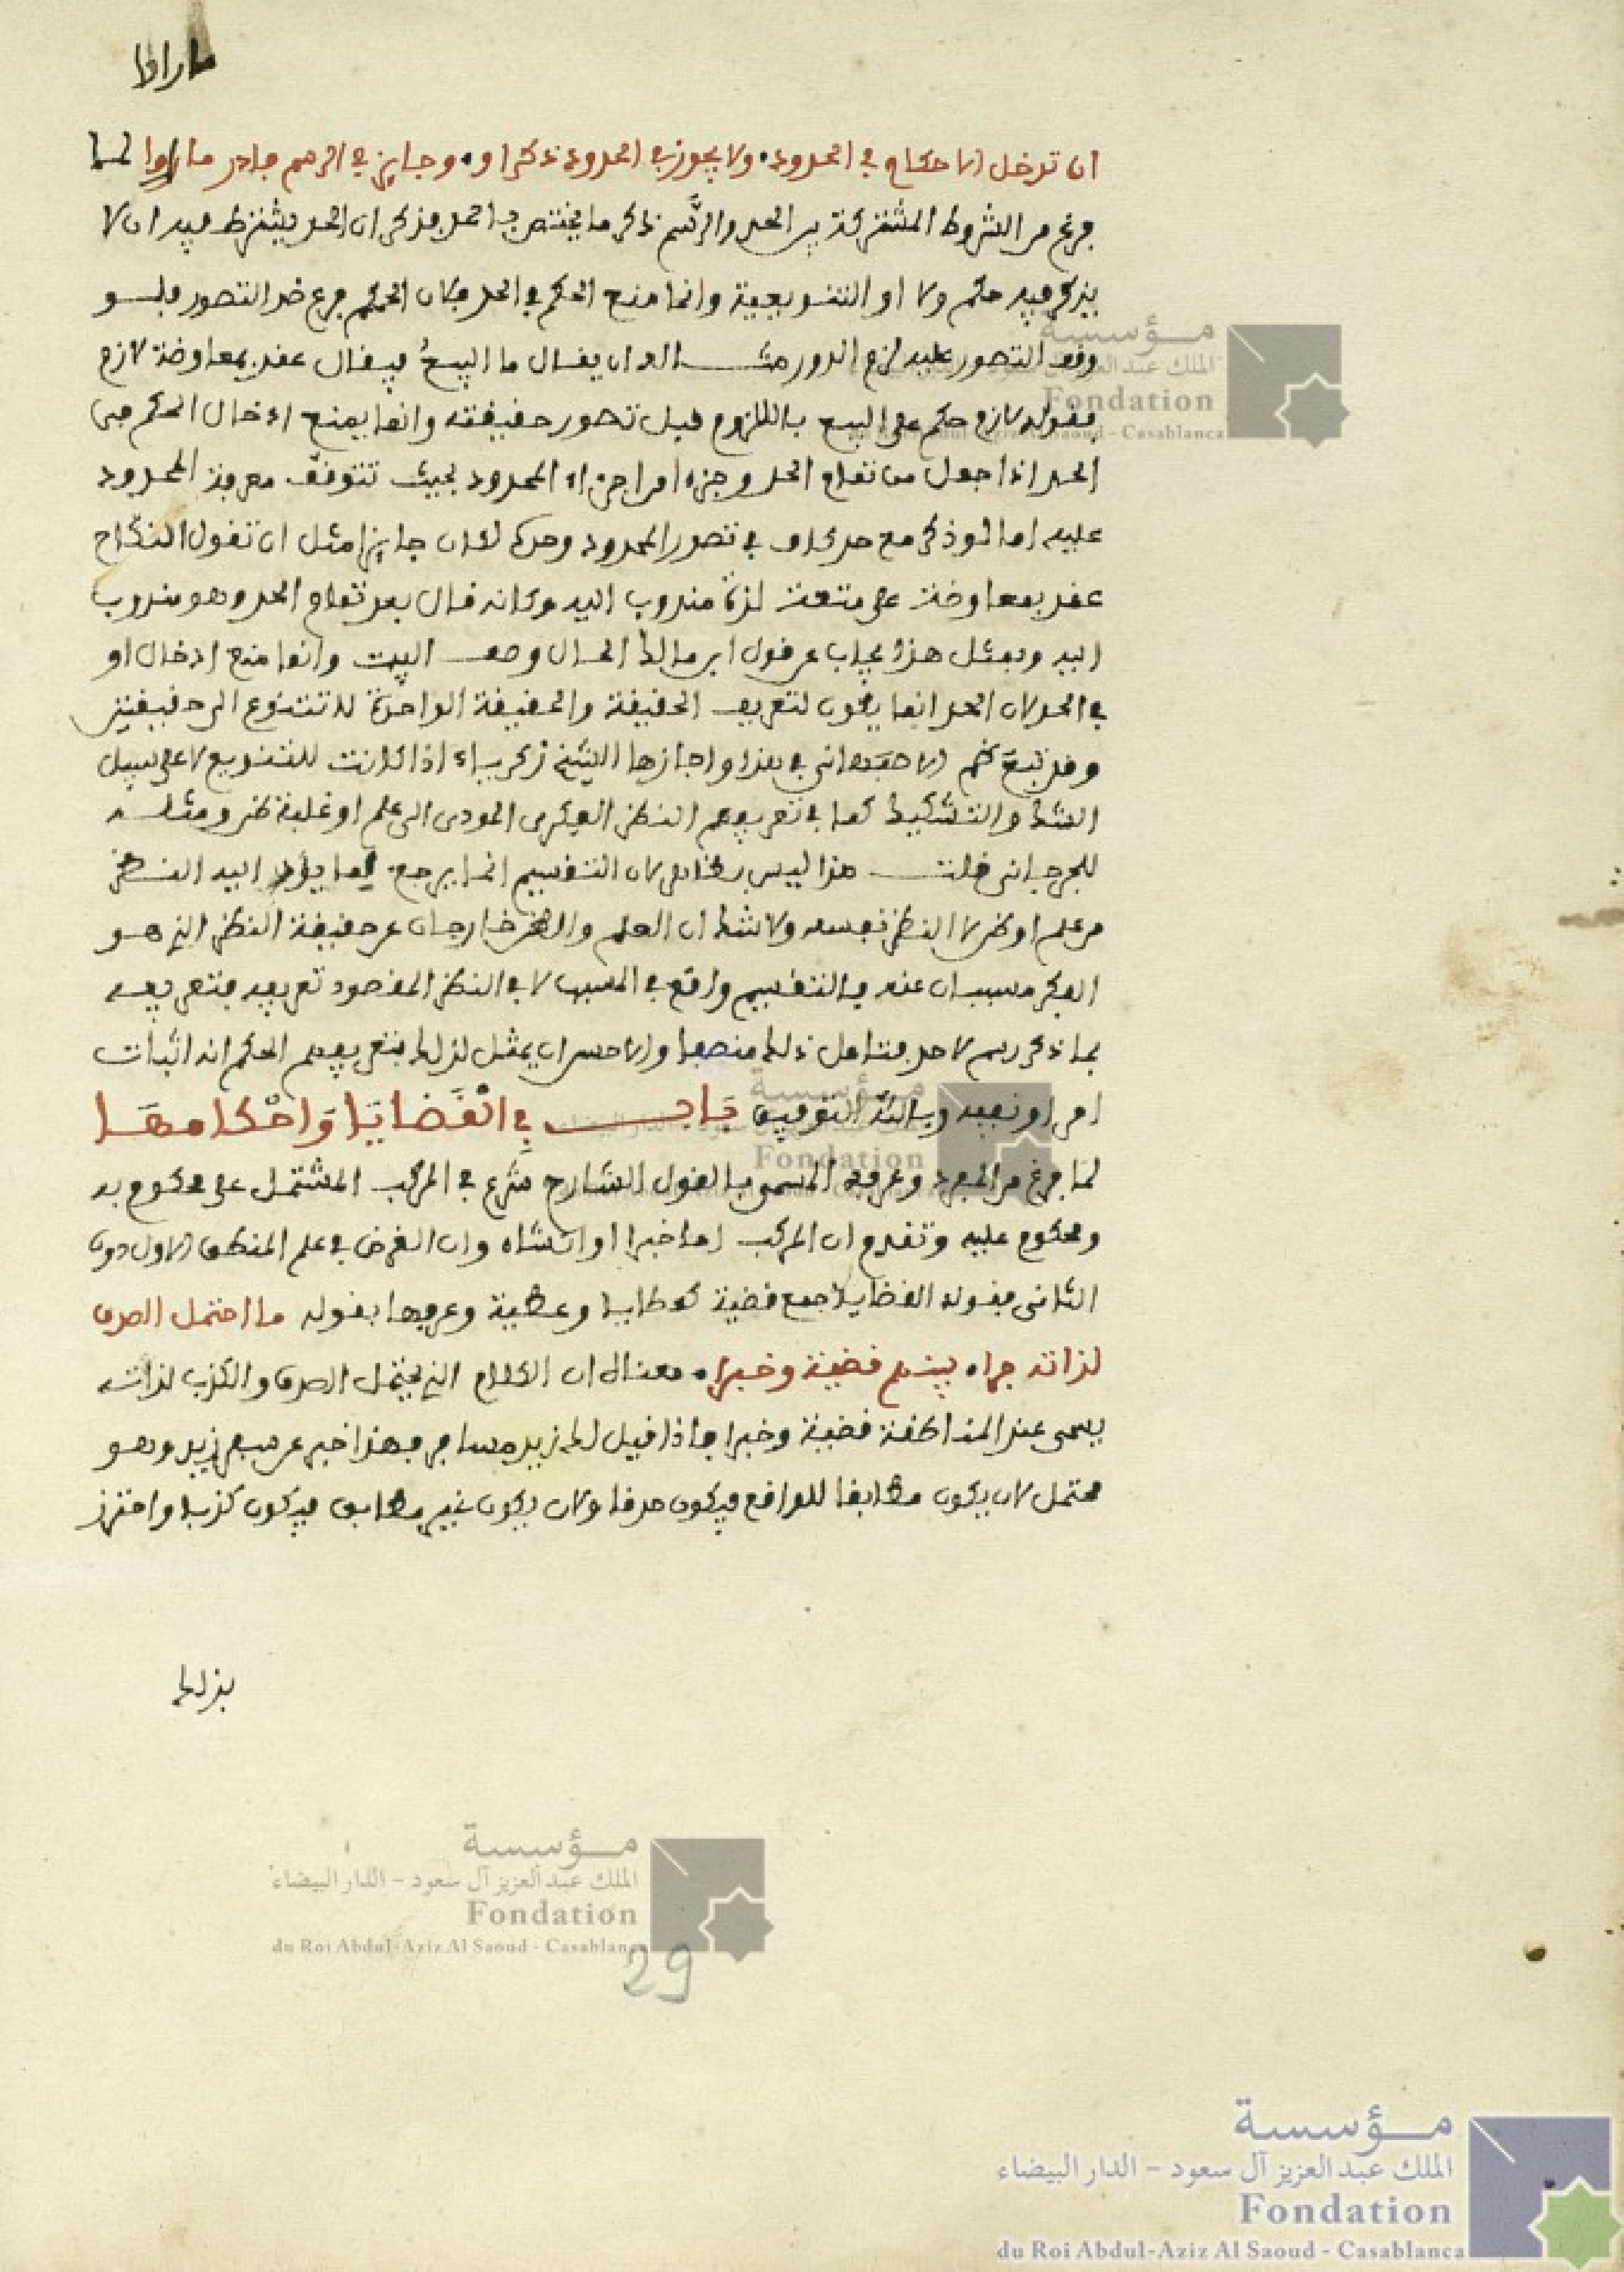 ما راوا
ان تدخل الاحكام في الحدود. ولا يجوز في الحدود ذكر او. وجايز في الرسم فادر ما راوا لما
فرغ من الشروط المشتركة بين الحد والرسم ذكر ما يختص به الحد فذكر ان الحد يشترط فيه ان لا
يذكر فيه حكم ولا او التنويعية وانما منع الحكم في الحد فلان الحكم فرع عن التصور فلو
وقف التصور عليه لزم الدور مثاله ان يقال ما البيع فيقال عقد بمعاوضة لازم
فقوله لازم حكم على البيع باللزوم قبل تصور حقيقته وانما يمنع ادخال الحكم في
الحد اذا جعل من تمام الحد وجزءا من اجزاء المحدود بحيث تتوقف معرفة المحدود
عليه اما لو ذكر مع حد كاف في تصور المحدود وحده لكان جايزا مثل ان تقول النكاح
عقد بمعاوضة على متعة لذة مندوب اليه وكانه قال بعد تمام الحد وهو مندوب
اليه وبمثل هذا يجاب عن قول ابن مالك الحال وصف البيت وانما منع ادخال او
في الحد لان الحد انما يكون لتعريف الحقيقة والحقيقة الواحدة لا تتنوع الى حقيقتين
وقد تبع الاصفهاني في هذا واجازها الشيخ زكرياء اذا كانت للتنويع لا على سبيل
الشك والتشكيك كما في تعريفهم النظر الفكر المودي الى علم او غلبة ظن ومثله
للجرجاني قلت هذا ليس بظاهر لان التقسيم انما يرجع لما يؤدي اليه النظر
من علم او ظن لا النظر نفسه ولا شك ان العلم والظن خارجان عن حقيقة النظر الذي هو
الفكر مسببان عنه فالتقسيم واقع في المسبب لا في النظر المقصود تعريفه فتعريفه
بما ذكر رسم لا حد فتامل ذلك منصفا والاحسن ان يمثل لذلك بتعريفهم الحكم انه اثبات
امر او نفيه وبالله التوفيق باب في القضايا واحكامها
لما فرغ من المفرد وعرفه المسمى بالقول الشارح شرع في المركب المشتمل على محكوم به
ومحكوم عليه وتقدم ان المركب اما خبرا او انشاء وان الغرض في علم المنطق الاول دون
الثاني فقوله القضايا جمع قضية كمطايا وعطية وعرفها بقوله ما احتمل الصدق
لذاته جراه بينهم قضية وخبرا. معناه ان الكلام الذي يحتمل الصدق والكذب لذاته
يسمى عند المناطقة قضية وخبرا فاذا قيل لك زيد مسافر فهذا خبر عن سفر زيد وهو
محتمل لان يكون مطابقا للواقع فيكون صدقا ولان يكون غير مطابق فيكون كذبا واحترز
بذلك
29
مؤسسة
الملك عبد العزيز آل سعود - الدار البيضاء
Fondation
du Roi Abdul-Aziz Al Saoud - Casablanca